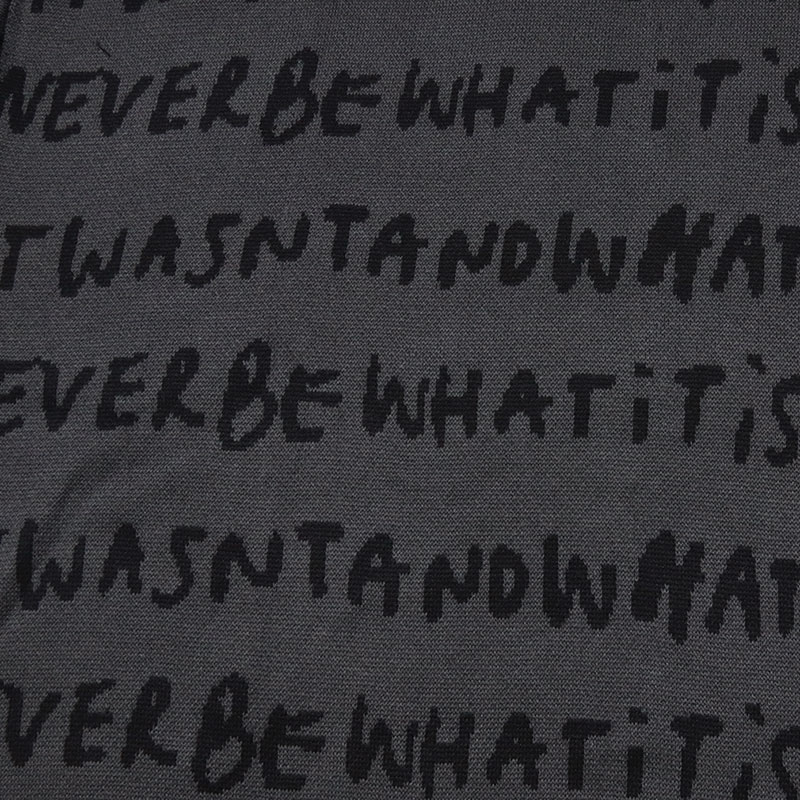 NEVERBEWHATITIS
TWASNTANDWHAT
EVERBEWHATITIS
TWASNTANDWHAT
VERBEWHATITIS